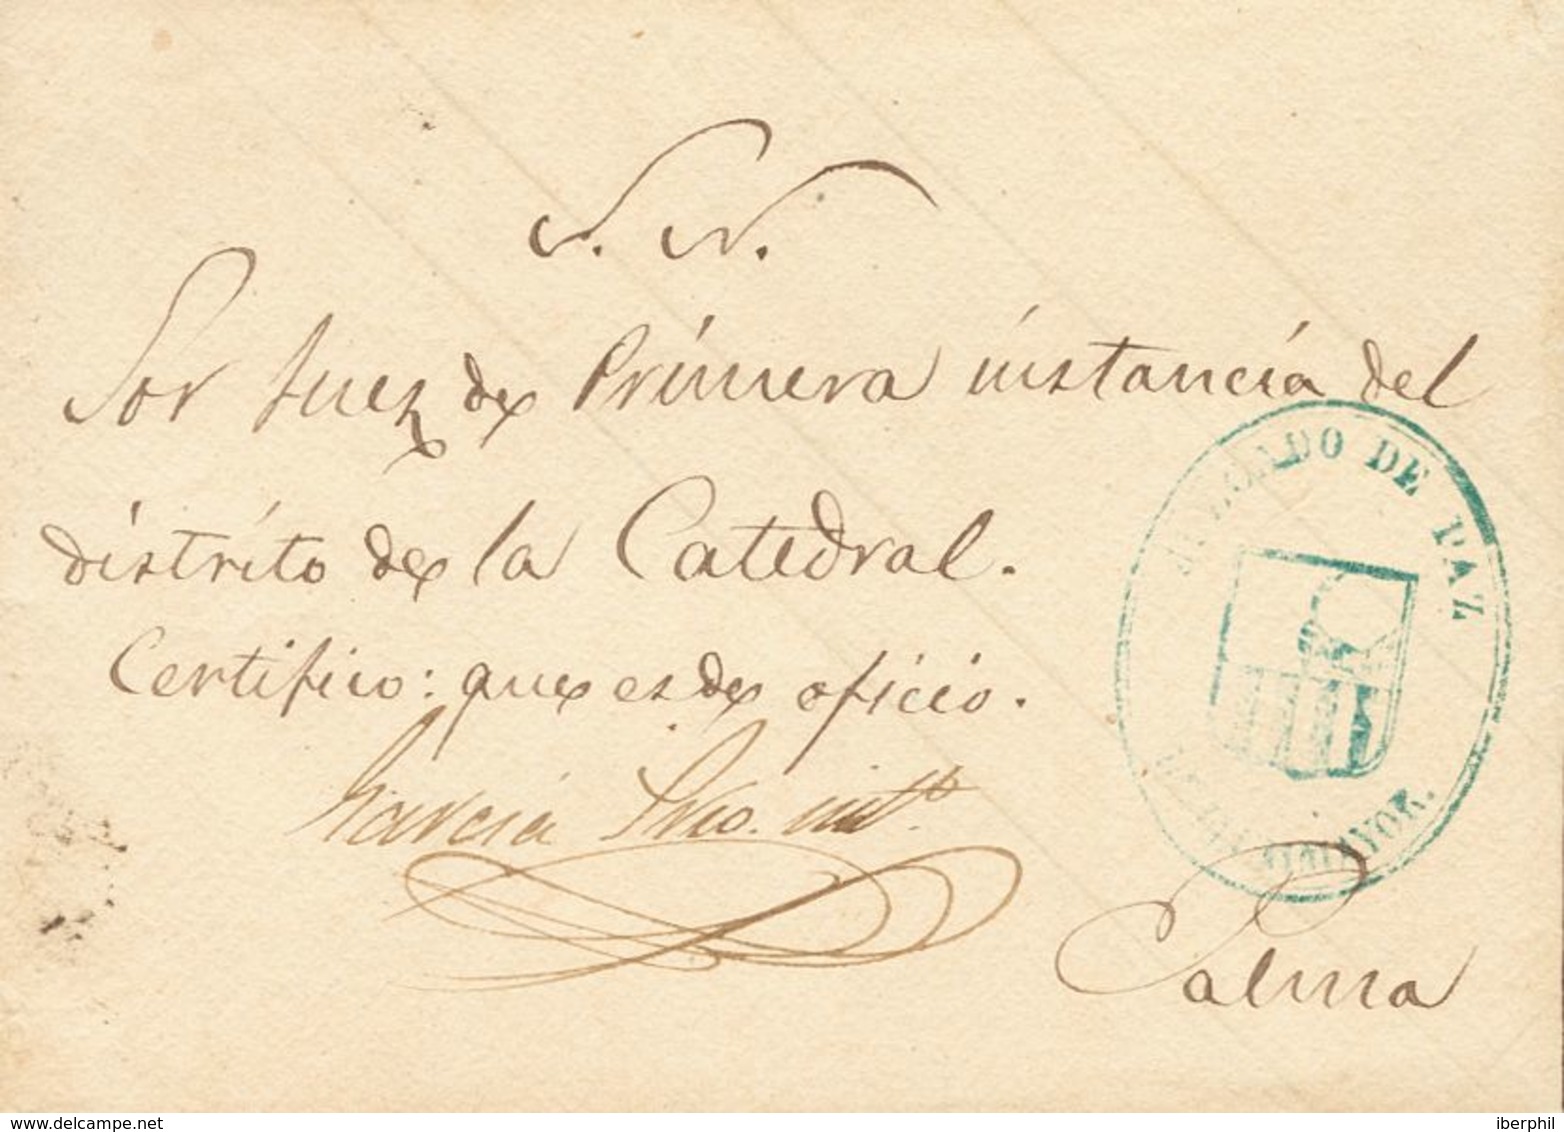 S. N.
Sor Juez de Primera instancia del
distrito de la Catedral.
Certifico: que es de oficio.
García Srio. intº.
JUZGADO DE PAZ
Palma
www.delcampe.net
iberphil